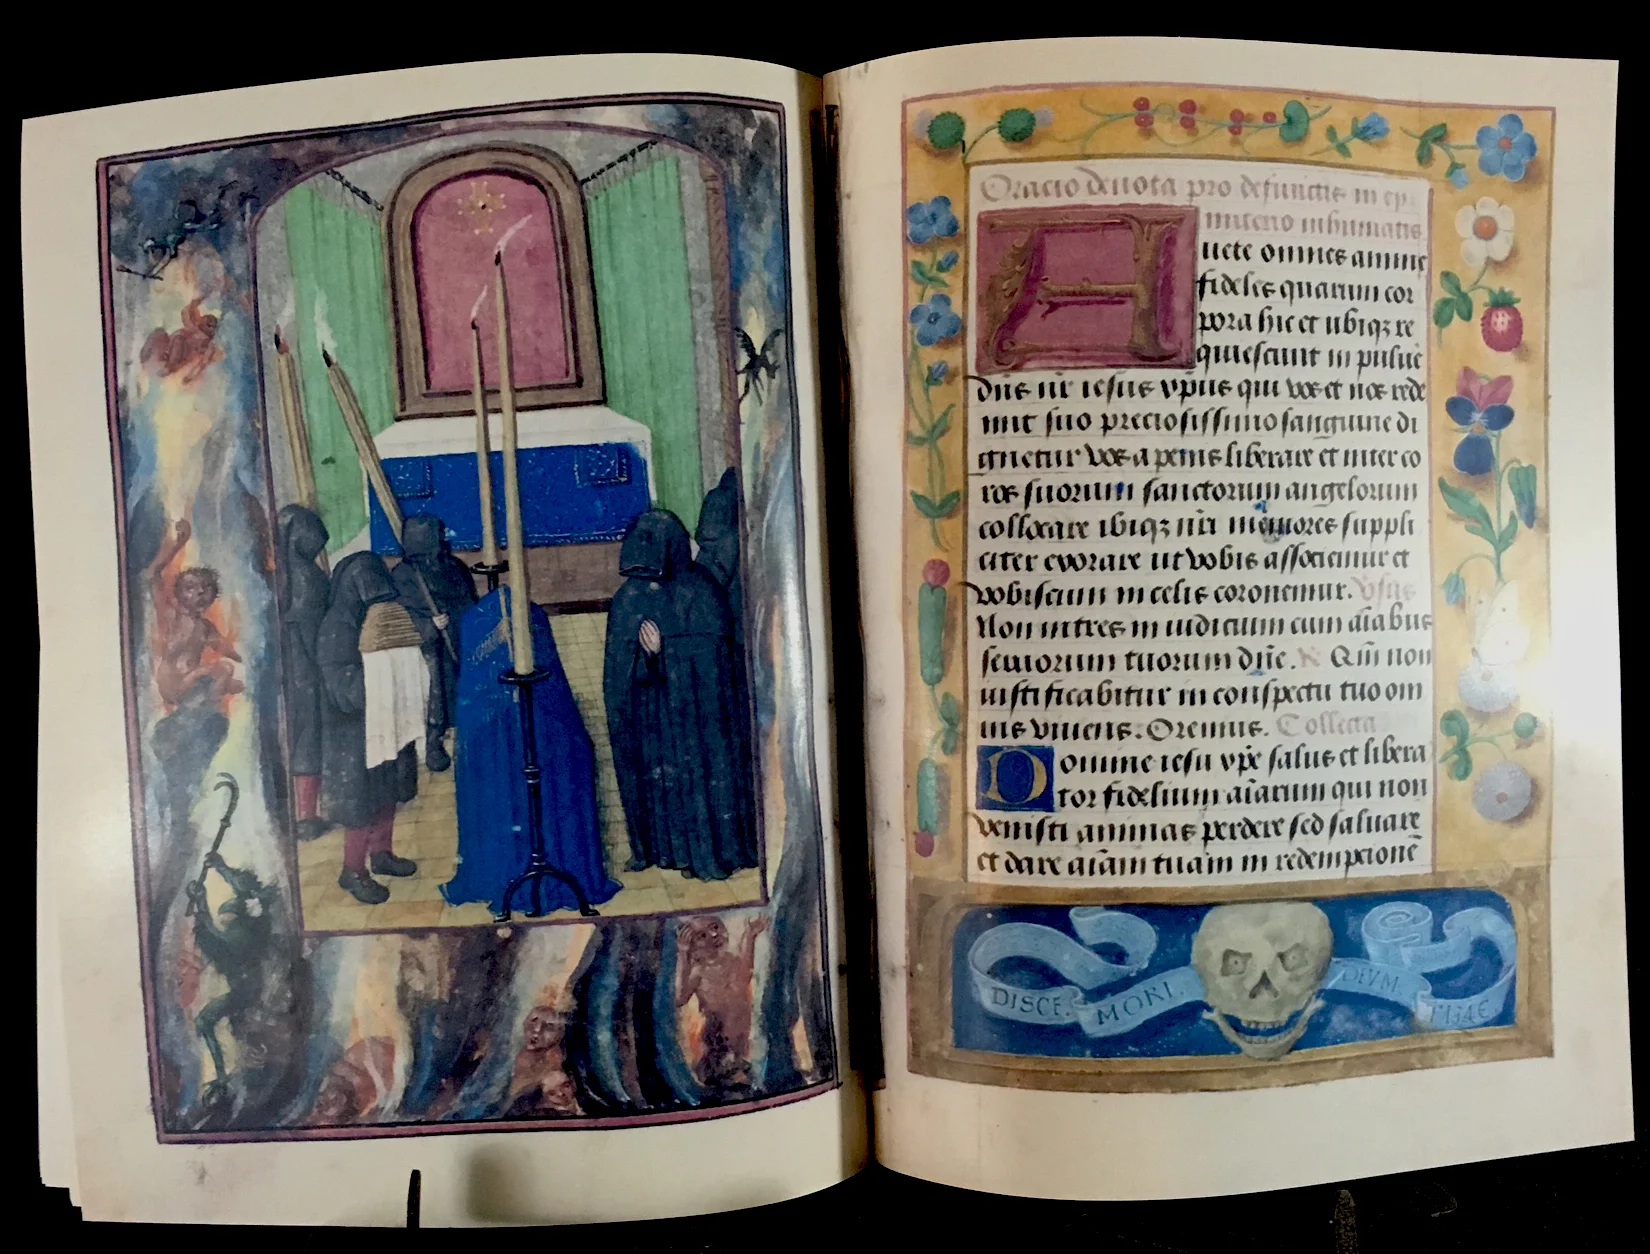 Oracio deuota pro defunctis in cy
miterio inhumatis
Auete omnes anime
fideles quarum cor
pora hic et ubiqz re
quiescunt in puluē
dn̄s nr̄ iesus xp̄us qui vos et nos rede
mit suo preciosissimo sanguine di
gnetur vos a penis liberare et inter co
ros suorum sanctorum angelorum
collocare ibiqz nr̄i memores suppli
citer exorare ut vobis associemur et
vobiscum in celis coronemur. v̄sus
Non intres in iudicium cum aīabus
seruorum tuorum dn̄e. R Qm̄ non
iustificabitur in conspectu tuo om
nis viuens. Oremus. Collecta
Domine iesu xp̄e salus et libera
tor fidelium aīarum qui non
venisti animas perdere sed saluare
et dare aīam tuam in redemptionē
DISCE. MORI. DEVM. TIMĒ